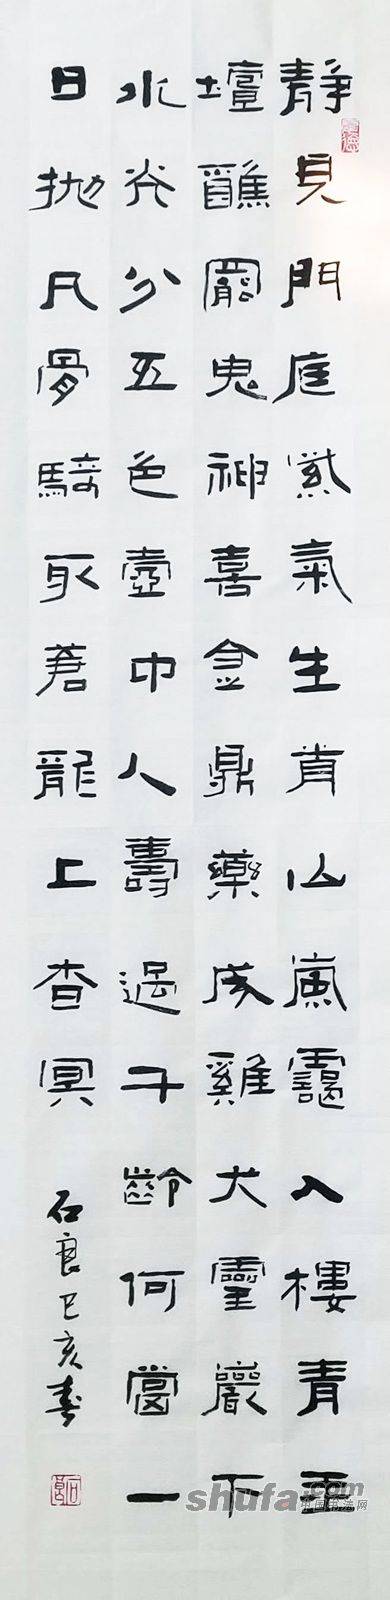 靜見門庭紫氣生前山嵐靄入樓青玉
壇醮罷鬼神喜金鼎藥成雞犬靈巖下
水光分五色壺中人壽過千齡何當一
日拋凡骨騎取蒼龍上杳冥
石良己亥春
shufa.com
中国书法网